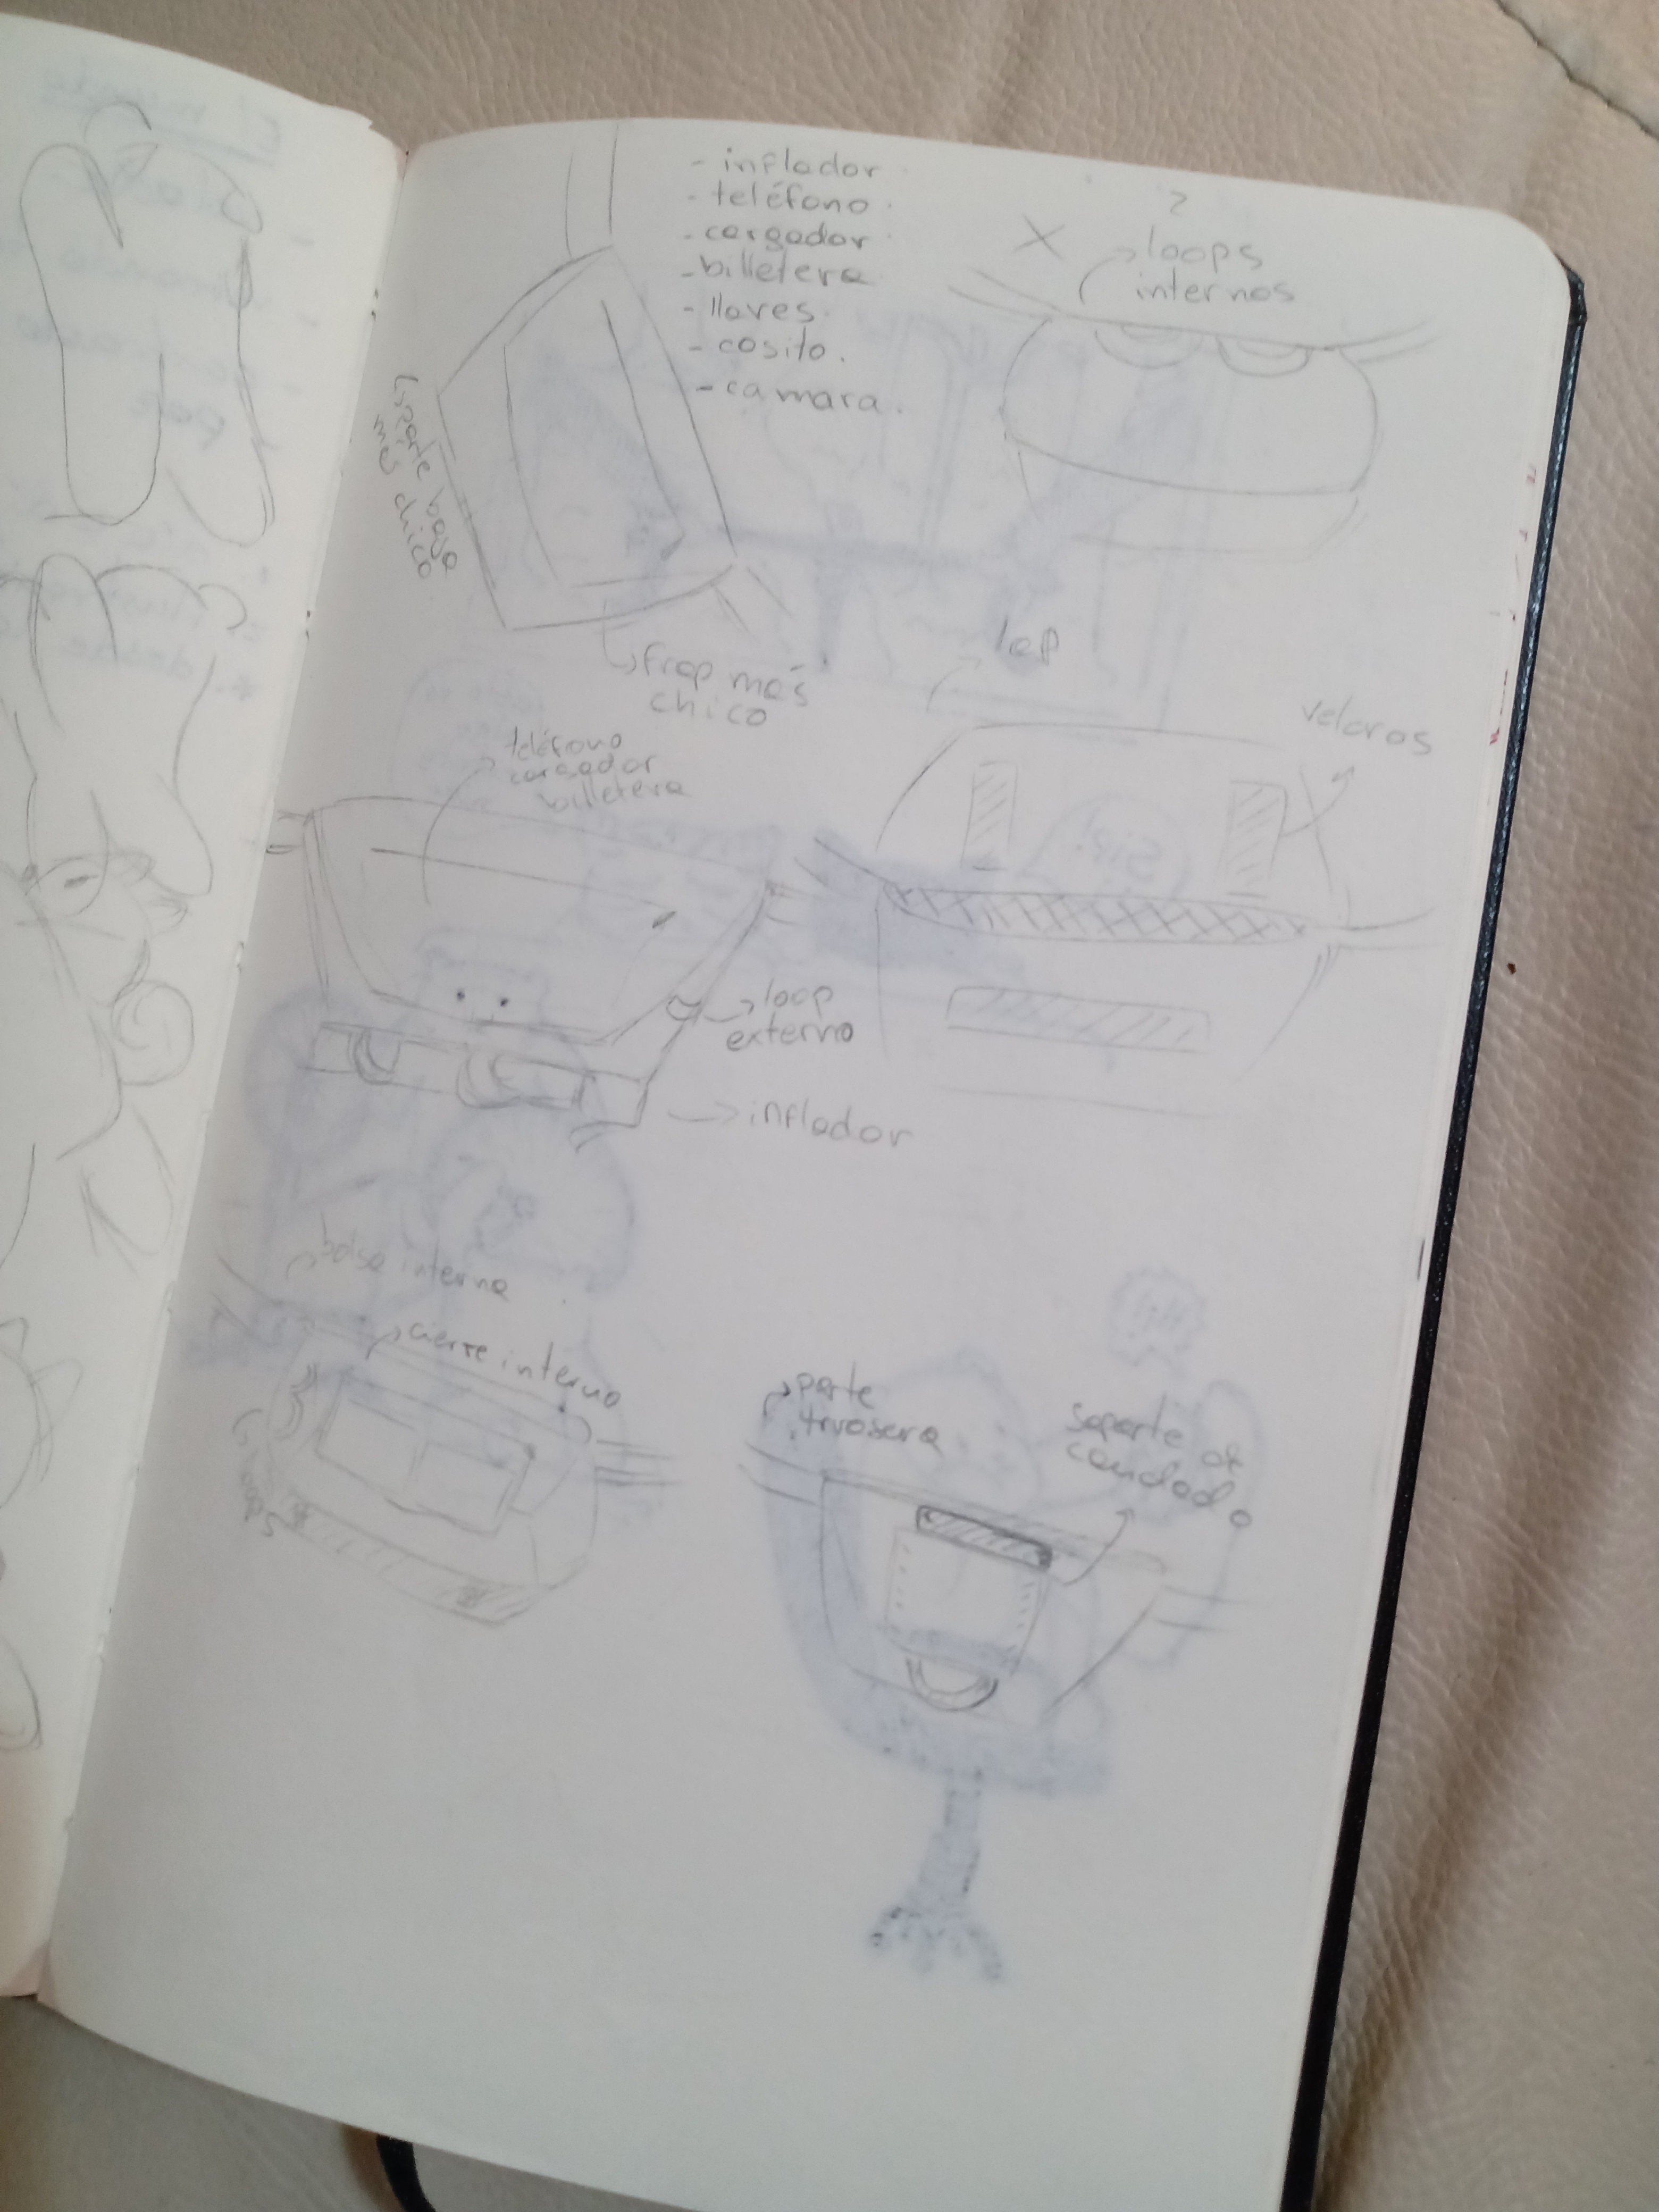 - inflador
- teléfono.
- cargador
- billetera
- llaves.
- cosito.
- camara.
?
X
loops
internos
parte baja
más chico
frap más
chico
lap
velcros
teléfono
cargador
billetera
loop
externo
inflador
bolsa interna
cierre interno
loops
parte
soporte
candado